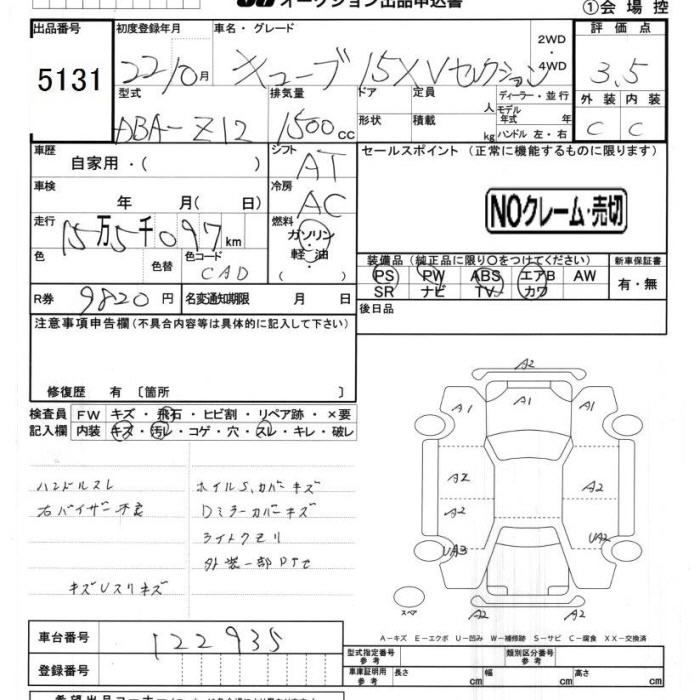 オークション出品申込書
①会場控
出品番号 初度登録年月 車名・グレード 2WD・4WD 評価点
5131 22/0月 キューブ 15XVセレクション 3.5
型式 排気量 ドア 定員 人 ディーラー・並行 外装 内装
DBA-Z12 1500cc 形状 積載 kg モデル年式 年 ハンドル 左・右 C C
車歴 自家用・( ) シフト AT セールスポイント(正常に機能するものに限ります)
車検 年 月( 日) 冷房 AC
NOクレーム・売切
走行 15万5千097km 燃料 ガソリン・軽油・( )
色 色替 色コード CAD
装備品(純正品に限り○をつけてください) 新車保証書
PS PW ABS エアB AW 有・無
SR ナビ TV カワ
R券 9820円 名変通知期限 月 日
後日品
注意事項申告欄(不具合内容等は具体的に記入して下さい)
修復歴 有〔箇所 〕
検査員 FW キズ・飛石・ヒビ割・リペア跡・×要
記入欄 内装 キズ・汚レ・コゲ・穴・スレ・キレ・破レ
ハンドルスレ ホイルS,カバーキズ
右バイザー不良 Dミラーカバーキズ
ライトクモリ
外装一部PTセ
キズUスリキズ
A2
A1 A1
A2
A2 A2
UA3 UA2
A2 A2
スペア
A-キズ E-エクボ U-凹み W-補修跡 S-サビ C-腐食 XX-交換済
車台番号 122935
登録番号
型式指定番号 参考 類別区分番号 参考
車庫証明用 参考 長さ cm 幅 cm 高さ cm
希望出品コーナー